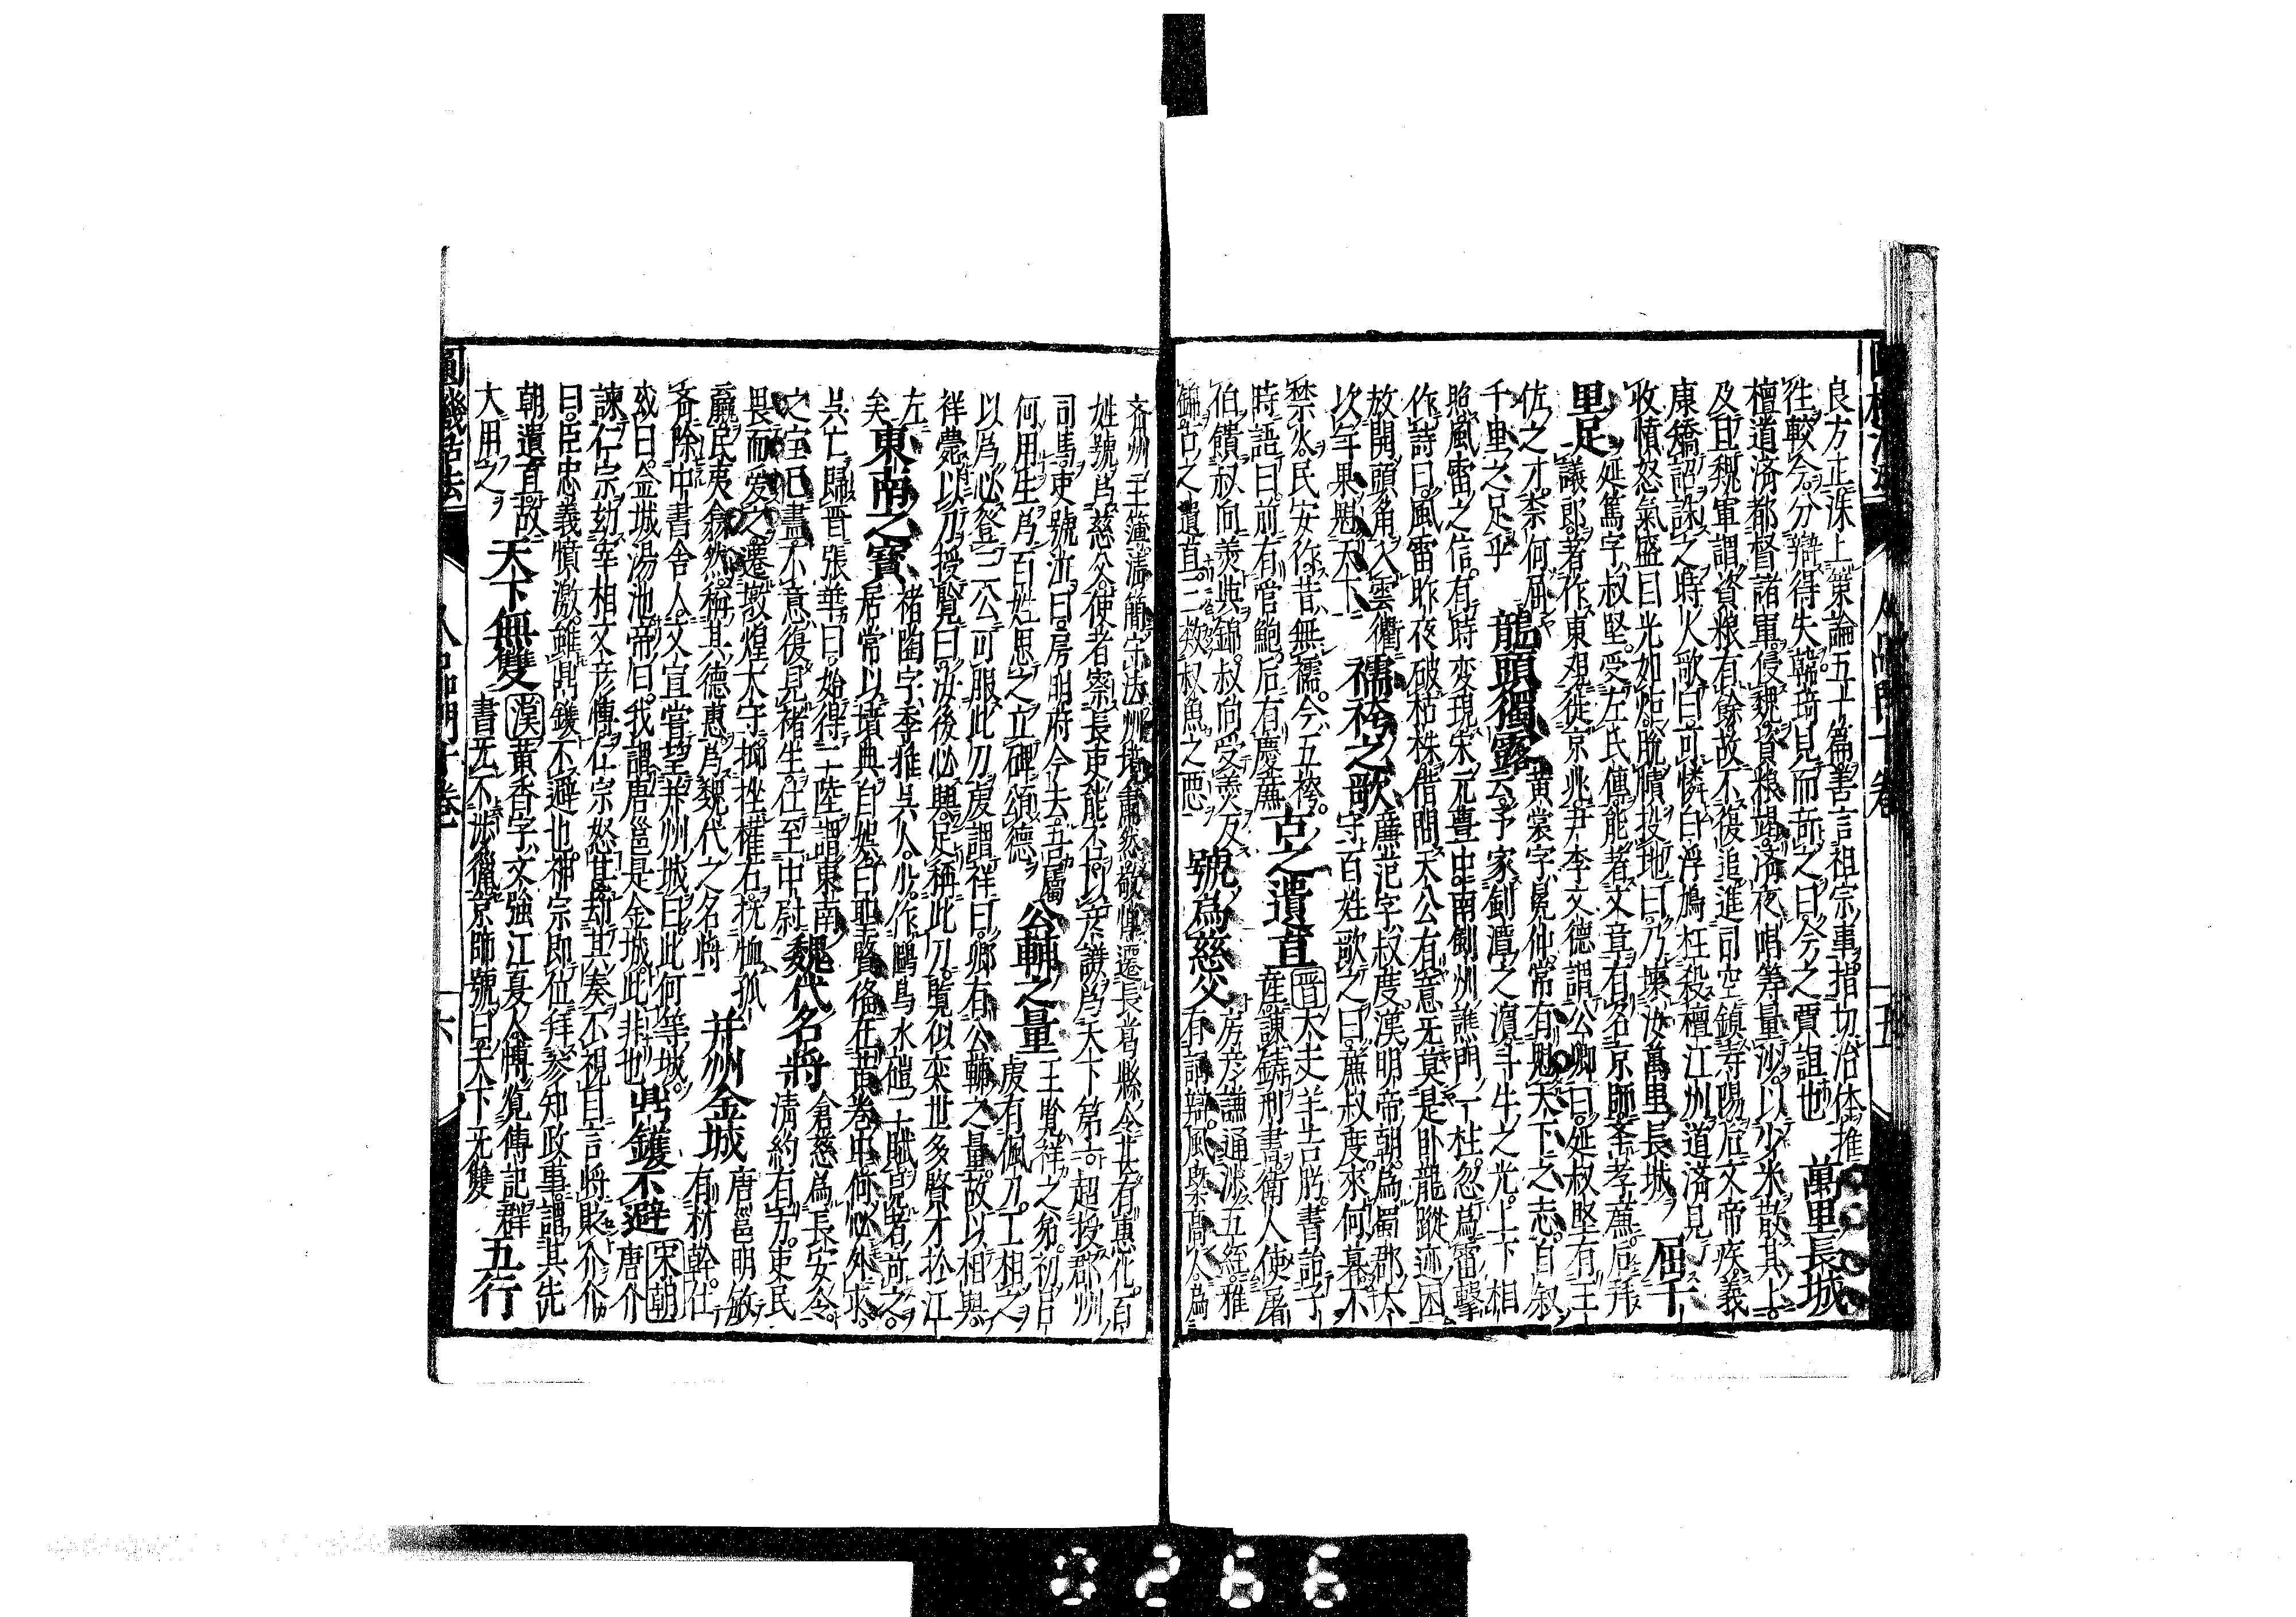 良方正洙上策論五十篇善言祖宗事指切治体推
徃較今分辯得失韓琦見而竒之曰今之賈誼也 萬里長城
檀道済都督諸軍侵魏資粮竭済夜唱筹量沙以少米散其上
及旦魏軍謂資粮有餘故不復追進司空鎮寿陽后文帝疾義
康矯詔誅之時人歌曰可憐白浮鳩枉殺檀江州道済見
收憤怒氣盛目光如炬脱幘投地曰乃壊汝萬里長城 屈千
里足 延篤字叔堅受左氏傳能著文章有名京師挙孝廉后拜
議郎著作東観徙京兆尹李文德謂公卿曰延叔堅有王
佐之才柰何屈千里之足乎 龍頭獨露 黄裳字冕仲常有魁天下之志自叙
云予家剣潭之濵斗牛之光上下相
照風雷之信有時变現宋元豊中南剣州譙門一柱忽爲雷擊
作詩曰風雷昨夜破枯株借問天公有意无莫是卧龍蹤迹困
放開頭角入雲衢
次年果魁天下 襦袴之歌 廉范字叔度漢明帝朝爲蜀郡太
守百姓歌之曰廉叔度來何暮不
禁火民安作昔無襦今五袴
時語曰前有管鮑后有慶廉 古之遺直 晋大夫羊舌肸書詒子
産諫鋳刑書衛人使屠
伯饋叔向羮與錦叔向受羮反
錦古之遺直三数叔魚之悪 號爲慈父 房彦謙通渉五經雅
有詞辯風槩高人爲
齐州主簿清簡守法州境肅然敬憚遷長葛縣令甚有惠化百
姓號爲慈父使者察長吏能否以彦謙爲天下第一超授郡州
司馬吏號泣曰房明府今去吾属
何用生爲百姓思之立碑頌德 公輔之量 王覧祥之弟初呂
虔有佩刀工相之
以爲必登三公可服此刀虔謂祥曰卿有公輔之量故以相與
祥薨以刀授覧曰汝後必興足稱此刀覧似奕世多賢才於江
左矣 東南之寳 褚陶字季雅呉人少作鷗鳥水磑二賦見者竒之
居常以墳典自娯曰聖賢俻在黄巻中何必外求
呉亡歸晋張華曰始得二陸謂東南
之宝已盡不意復見褚生仕至中尉 魏代名将 倉慈爲長安令
清約有方吏民
畏而爱之遷燉煌太守抑挫權右抚恤孤
羸民夷翕然稱其德惠爲魏代之名将 并州金城 唐邕明敏
有材幹仕
斉除中書舎人文宣嘗望并州城曰此何等城
或曰金城湯池帝曰我謂唐邕是金城此非也 鼎鑊不避 宋朝
唐介
諫仁宗劾宰相文彦愽仁宗怒甚却其奏不視且言将貶介介
曰臣忠義憤激雖鼎鑊不避也神宗即位拜参知政事謂其先
朝遺直故
大用之 天下無雙 漢黄香字文強江夏人愽覧傳記群
書无不渉獵京師號曰天下无雙 五行